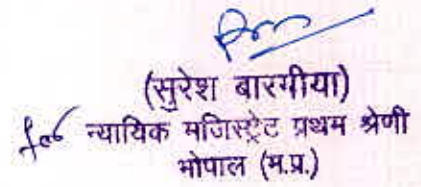 (सुरेश बारगीया)
न्यायिक मजिस्ट्रेट प्रथम श्रेणी
भोपाल (म.प्र.)